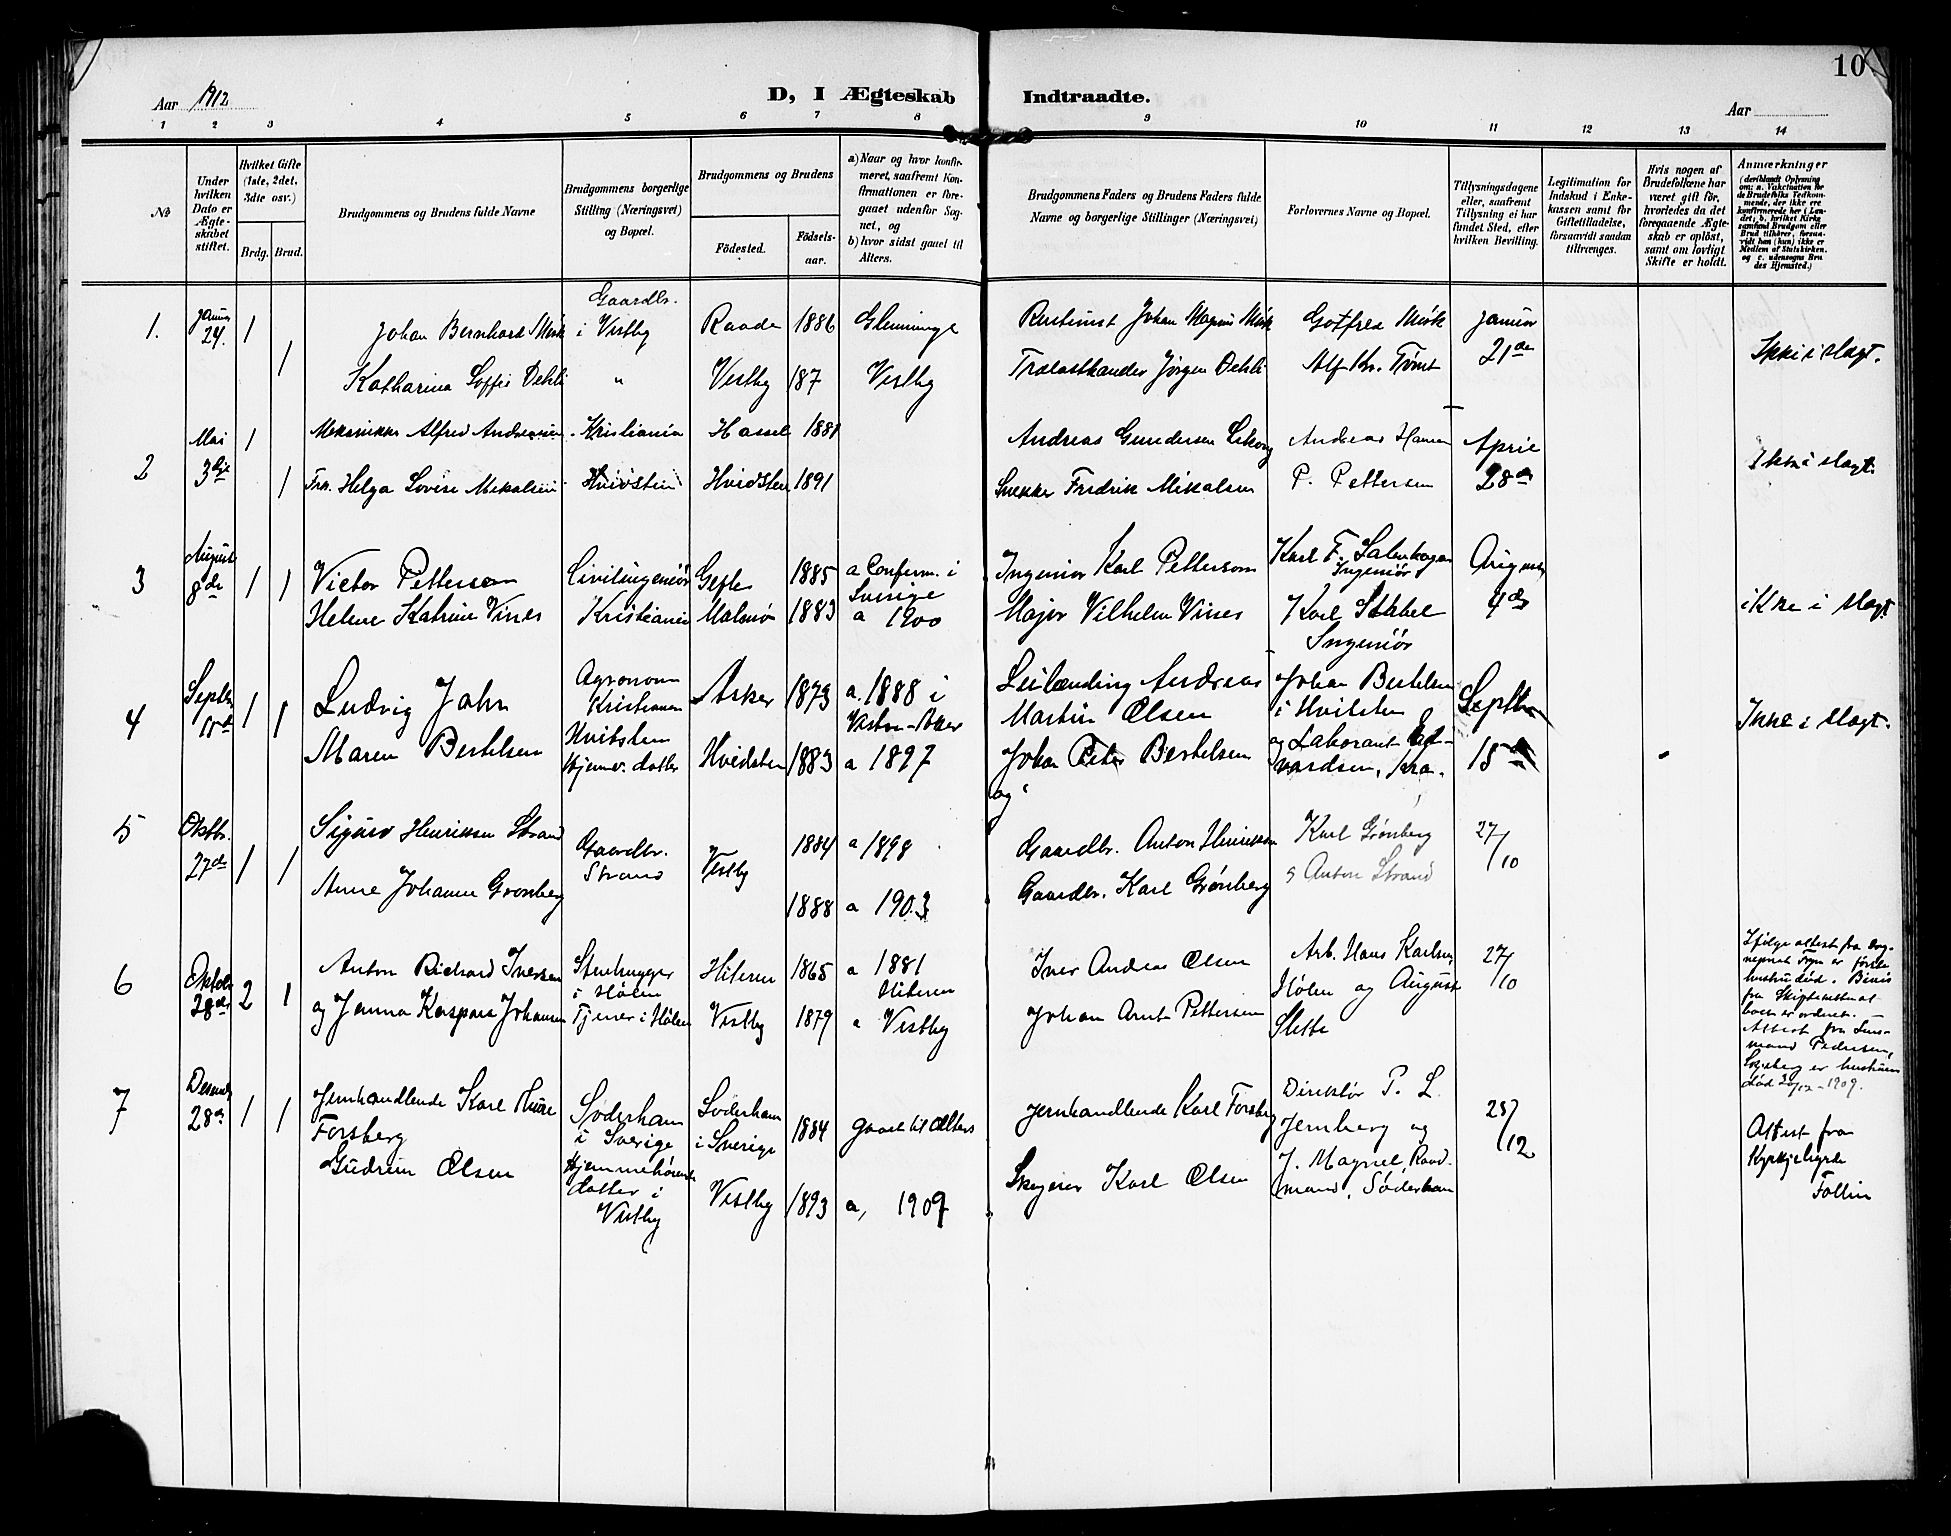 10
Aar 1912
D, I Ægteskab Indtraadte.
Aar
1 2 3 4 5 6 7 8 9 10 11 12 13 14
№
Under hvilken Dato er Ægteskabet stiftet.
Hvilket Gifte (1ste, 2det, 3die osv.)
Brdg. Brud.
Brudgommens og Brudens fulde Navne
Brudgommens borgerlige Stilling (Næringsvei) og Bopæl.
Brudgommens og Brudens
Fødested.
Fødselsaar.
a) Naar og hvor konfirmeret, saafremt Konfirmationen er foregaaet udenfor Sognet, og
b) hvor sidst gaaet til Alters.
Brudgommens Faders og Brudens Faders fulde Navne og borgerlige Stillinger (Næringsvei)
Forlovernes Navne og Bopæl.
Tillysningsdagene eller, saafremt Tillysning ei har fundet Sted, efter hvilken Bevilling.
Legitimation for Indskud i Enkekassen samt for Giftetilladelse, forsaavidt saadan tiltrænges.
Hvis nogen af Brudefolkene har været gift før, hvorledes da det foregaaende Ægteskab er opløst, samt om lovligt Skifte er holdt.
Anmærkninger
1. Januar 24. 1 Johan Bernhard Mørk Gaardbr. i Vestby Raade 1886 Glemminge Johan Magnus Mørk Gotfred Mørk Januar
1 Katharina Soffie Dehli " Vestby 87 Vestby Trælasthandler Jørgen Dehli Alf Kr. 21de Ikke i slægt.
2 Mai 3die 1 Mekaniker Alfred Andreassen Kristiania Hassel 1881 Andreas Gundersen Andreas Hansen April
1 Frk. Helga Lovise Mikalsen Hvidsten Hvidsten 1891 Snekker Fredrik Mikalsen P. Pettersen 28de Ikke i slægt.
3 August 8de 1 1 Victor Petterson Civilingeniør Gefle 1885 a Conferm. i Sverige Ingeniør Karl Petterson Karl F. Ingeniør August
Helene Katrine Vines Kristiania Malmø 1883 a 1900 Major Vilhelm Vines Karl Ingeniør 4de ikke i slægt
4 Septbr. 1 1 Ludvig Jahr Agronom Kristiania Asker 1873 a. 1888 i Vestre-Aker Leilænding Andreas Martin Olsen Johan Bertelsen i Hvitsten Septbr.
Maren Bertelsen Hvitsten Hjemv. datter Hvidsten 1883 a 1897 Johan Peter Bertelsen og Laborant Edvardsen, Kra. 15de Ikke i slægt.
og
5 Oktbr. 27de 1 1 Sigurd Henriksen Strand Gaardbr. Strand Vestby 1884 a 1898 Gaardbr. Anton Henriksen Karl Grønberg 27/10
Anne Johanne Grønberg 1888 a 1903 Gaardbr. Karl Grønberg & Anton Strand
6 Oktobr 28de 2 1 Anton Richard Iversen Stenhugger i Hølen Hiteren 1865 a 1881 Hiteren Iver Andreas Olsen Arb. Hans Karlsen, 27/10
og Jenna Kaspara Johansen Tjener i Hølen Vestby 1879 a Vestby Johan Arnt Pettersen Hølen og August Slette
Ifølge attest fra
er første hustru død. Bevis fra Skifteretten at
boet er ordnet. -
Attest fra Lensmand Pedersen,
er hustruen
død 20/12 - 1909.
7 28de 1 1 Jernhandlende Karl Forsberg Søderham i Sverige Søderham i Sverige 1884 gaaet til alters Jernhandlende Karl Forsberg Direktør P. L. Jernberg og 28/12
Gudrun Olsen Hjemmehørende datter i Vestby Vestby 1893 a, 1909 Skogeier Karl Olsen J. Magnel, Raadmand, Søderham
Attest fra Kyrkjeherde Follin